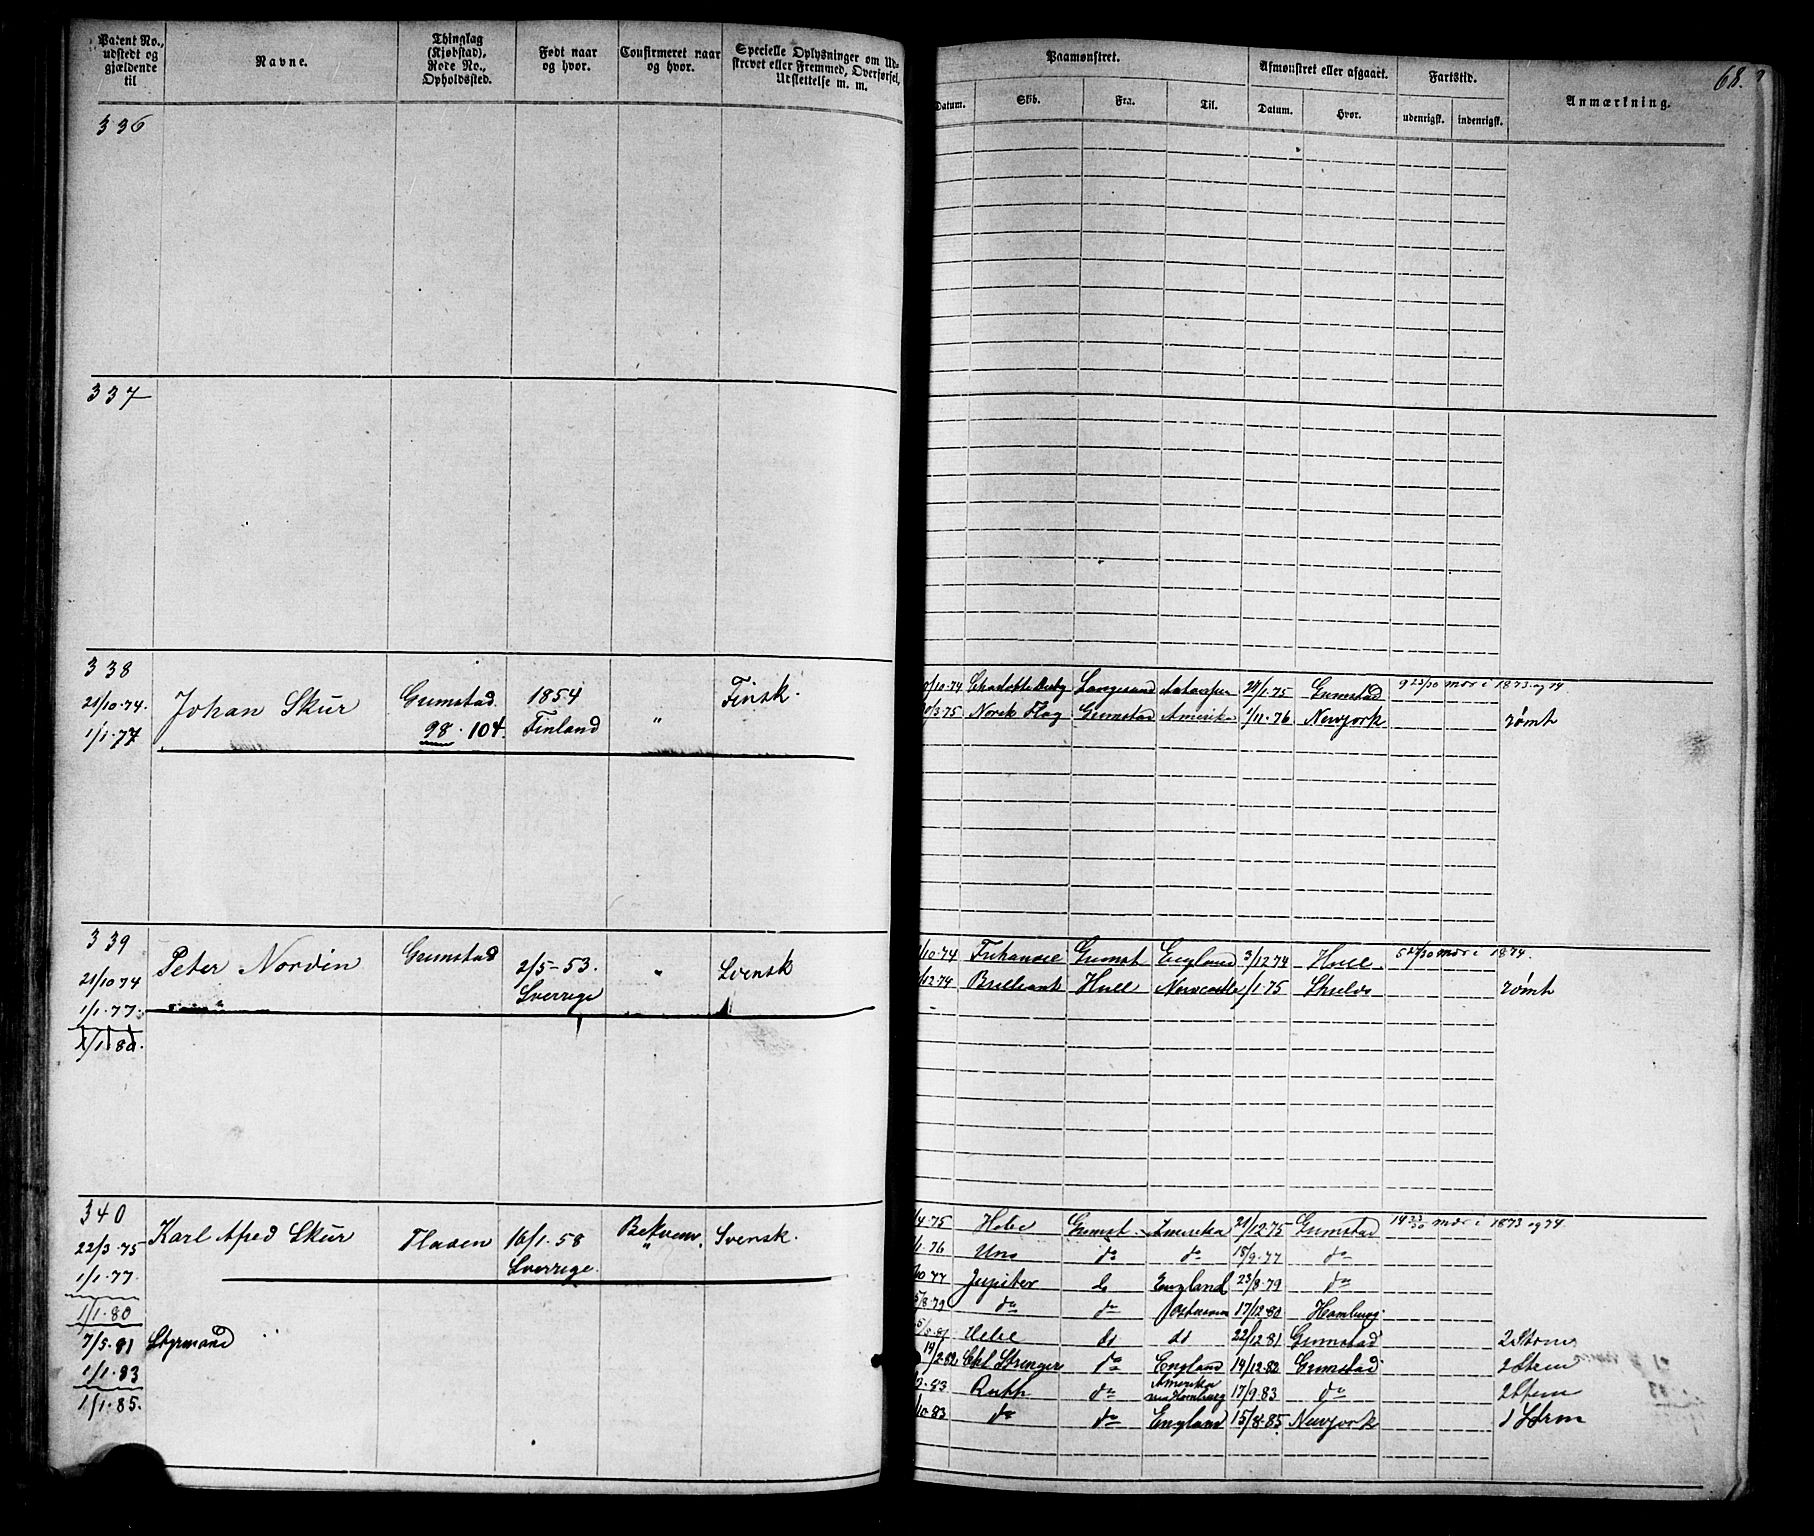 Patent No., udstedt og gjældende til | Navne. | Thinglag (Kjøbstad), Rode No., Opholdssted. | Født naar og hvor. | Confirmeret naar og hvor. | Specielle Oplysninger om Udskrevet eller Fremmed, Overførsel, Udslettelse m. m.
Paamønstret. | Afmønstret eller afgaaet. | Fartstid. | Anmærkning. | 68.
Datum. | Skib. | Fra. | Til. | Datum. | Hvor. | udenrigsk. | indenrigsk.
336
337
338
21/10-74. | Johan Skur | Grimstad | 1854 | Finsk.
1/1-77 | 98. 104. | Finland | "
/10-74 | Langesund | 21/1-75 | Grimstad | 9 23/30 mdr i 1873 og 74
/3-75 | Norsk Flag | Grimstad | Amerika | 1/11-76 | Newjork | rømt
339
21/10 74 | Peter Nordin | Grimstad | 2/5-53. | " | Svensk
1/1-77. | Sverrige
1/1 80.
/10-74 | Grimst | England | 3/12 74 | Hull. | 5 27/30 mdr i 1874.
/12-74 | Brilliant | Hull | Newcastle | /1-75 | Shields | rømt
340
22/3-75 | Karl Afred Skur | 16/1-58 | Svensk.
1/1-77. | Sverrige | "
1/1-80
7/5-81 | Styrmand
1/1-83
1/1-85.
/4-75 | Hebe | Grimst. | Amerika | 21/12-75 | Grimstad | mdr i 1873 og 74.
/1-76 | Uno | do | do | 15/9-77 | do
/10-77 | Jupiter | do | England | 23/3-79 | do
5/8-79 | do | do | Østersøen | 17/12-80 | Hamburg
5/5-81 | Hebe | do | do | 22/12 81 | Grimstad | 2 Styrm
14/2-82 | do | England | 19/12-82 | Grimstad | 2 Styrm
-83 | Ruth | do | Amerika via Hamburg | 17/9 83 | do | 2 Styrm
/10-83 | do | do | England | 15/8-85 | Newjork | 1 Styrm